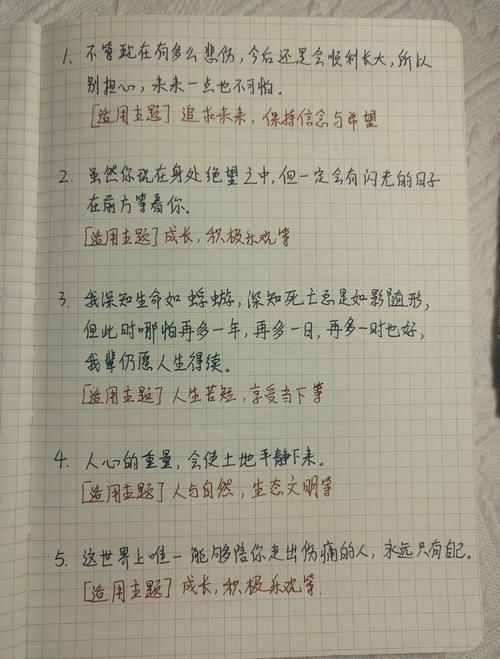 1. 不管现在有多么悲伤，今后还是会顺利长大，所以
别担心，未来一点也不可怕。
[适用主题] 追求未来，保持信念与希望
2. 虽然你现在身处绝望之中，但一定会有闪光的日子
在前方等着你。
[适用主题] 成长，积极乐观等
3. 我深知生命如蜉蝣，深知死亡总是如影随形，
但此时哪怕再多一年，再多一日，再多一时也好，
我辈仍愿人生得续。
[适用主题] 人生苦短，享受当下等
4. 人心的重量，会使土地平静下来。
[适用主题] 人与自然，生态文明等
5. 这世界上唯一能够陪你走出伤痛的人，永远只有自己。
[适用主题] 成长，积极乐观等